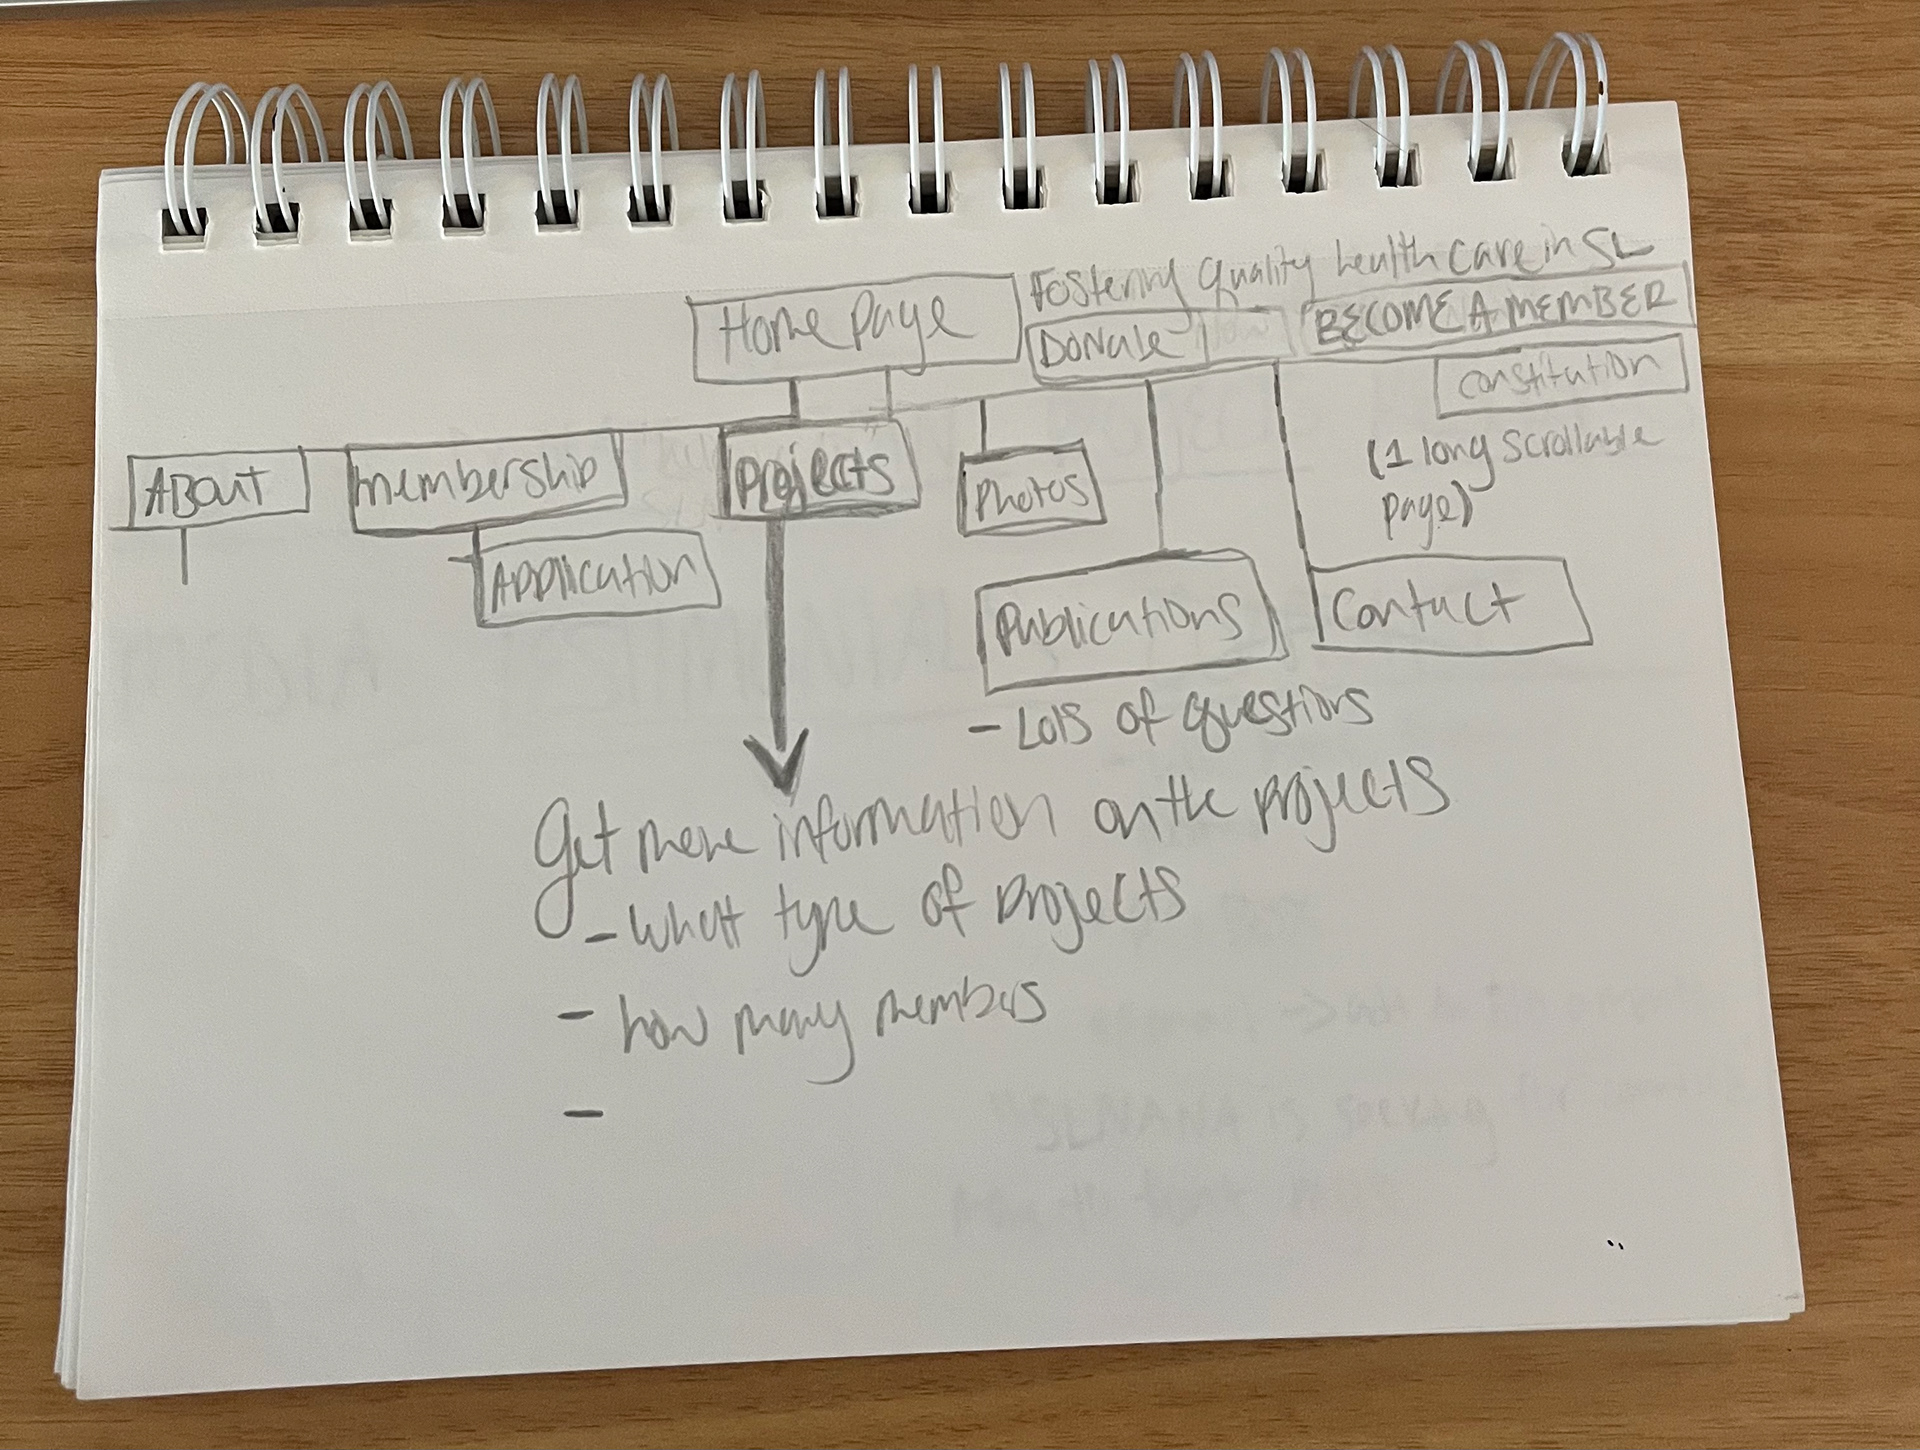 Fostering Quality health care in SL
Home Page
Donate
BECOME A MEMBER
constitution
(1 long scrollable
page)
ABOUT
membership
projects
Photos
Application
Publications
Contact
- Lots of questions
Get more information on the projects
- what type of projects
- how many members
-